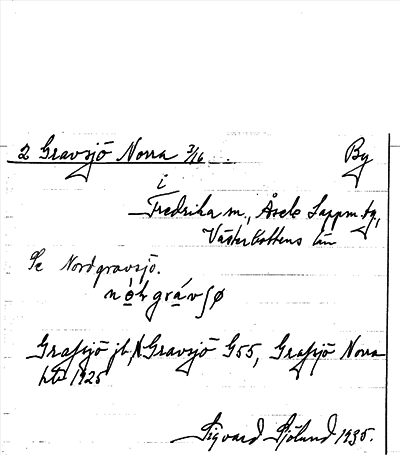 2 Gravsjö Norra 3/16 By
i
Fredrika sn., Åsele Lappm. tg,
Västerbottens län
Se Nordgravsjö.
Grafsjö jb, N Gravsjö G55, Grafsjö Norra
1925
Sigvard Sjölund 1935.